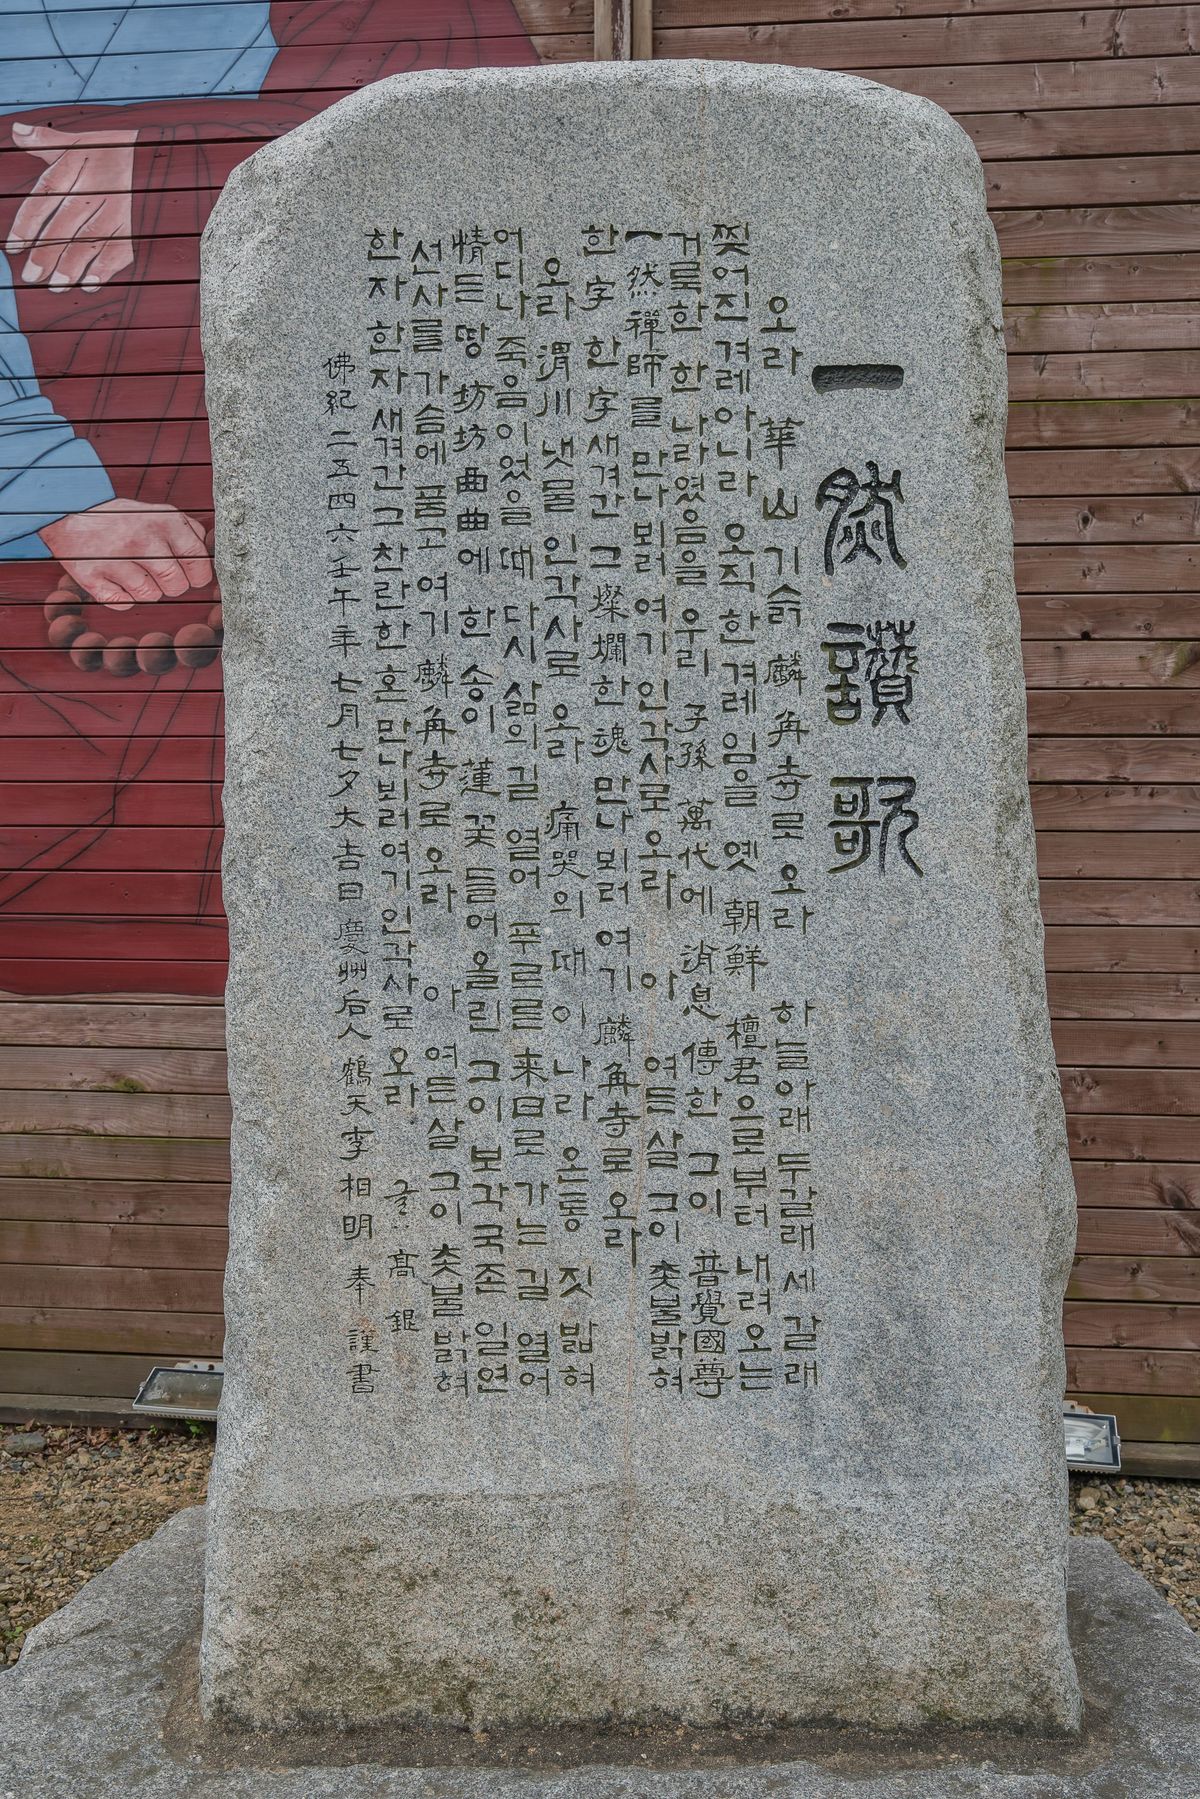 一然讚歌
오라 華山 기슭 麟角寺로 오라 하늘아래 두갈래 세갈래
찢어진 겨레아니라 오직 한겨레임을 옛 朝鮮 檀君으로부터 내려오는
거룩한 한나라였음을 우리 子孫 萬代에 消息 傳한 그이 普覺國尊
一然禪師를 만나뵈러 여기 인각사로 오라 아 여든살 그이 촛불밝혀
한字 한字새겨간 그 燦爛한 魂 만나뵈러 여기 麟角寺로 오라
오라 渭川 냇물 인각사로 오라 痛哭의 때 이 나라 온통 짓밟혀
어디나 죽음이었을 때 다시 삶의길 열어 푸르른 来日로 가는길 열어
情든 땅 坊坊曲曲에 한 송이 蓮꽃 들어올린 그이 보각국존 일연
선사를 가슴에 품고 여기 麟角寺로 오라 아 여든살 그이 촛불밝혀
한자 한자새겨간 그 찬란한 혼 만나뵈러 여기 인각사로 오라 글 高銀
佛紀 二五四六 壬午年 七月七夕 大吉日 慶州后人 鶴天 李相明 奉 謹書